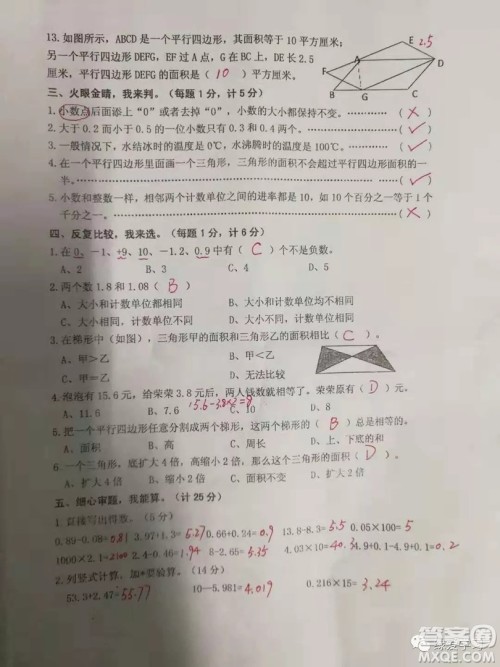 13. 如图所示，ABCD 是一个平行四边形，其面积等于 10 平方厘米；
另一个四边形 DEFG，EF 过 A 点，G 在 BC 上，DE 长 2.5
厘米，平行四边形 DEFG 的面积是（ 10 ）平方厘米。
E 2.5
A
D
F
B
G
C
三、火眼金睛，我来判。（每题 1 分，计 5 分）
1. 小数点后面添上“0”或者去掉“0”，小数的大小都保持不变。（ × ）
2. 大于 0.2 而小于 0.5 的一位小数只有 0.3 和 0.4 两个。（ ✓ ）
3. 一般情况下，水结冰时的温度是 0℃，水沸腾时的温度是 100℃。（ ✓ ）
4. 在一个平行四边形里面画一个三角形，三角形的面积不会超过平行四边形面积的一
半。（ ✓ ）
5. 小数和整数一样，相邻两个计数单位之间的进率都是 10，如 10 个百分之一等于 1 个
千分之一。（ × ）
四、反复比较，我来选。（每题 1 分，计 6 分）
1. 在 0、－1、+9、10、－1.2、0.9 中有（ C ）个不是负数。
A、2 B、3 C、4 D、5
2. 两个数 1.8 和 1.08（ B ）
A、大小和计数单位都相同 B、大小和计数单位均不相同
C、大小相同计数单位不同 D、大小不同计数单位相同
3. 在梯形中（如图），三角形甲的面积和三角形乙的面积相比（ C ）。
A、甲＞乙 B、甲＜乙
C、甲＝乙 D、无法比较
4. 炮炮有 15.6 元，给荣荣 3.8 元后，两人钱数就相等了。荣荣原有（ D ）元。
15.6-3.8×2=8
A、11.6 B、7.6 C、10 D、8
5. 把一个平行四边形任意分割成两个梯形，这两个梯形的（ B ）总是相等的。
A、面积 B、高 C、周长 D、上、下底的和
6. 一个三角形，底扩大 4 倍，高缩小 2 倍，那么这个三角形的面积（ D ）。
A、扩大 4 倍 B、缩小 2 倍 C、面积不变 D、扩大 2 倍
五、细心审题，我能算。（计 25 分）
1. 直接写出得数。（5 分）
0.89-0.08= 0.81 3.97+1.3= 5.27 0.66+0.24= 0.9 13.8-8.3= 5.5 0.05×100= 5
1000×2.1= 2100 2.4-1.94= 8-2.65= 5.35 4.03×10= 4.9+0.1-4.9+0.1= 0.2
2. 列竖式计算，加*要验算。（14 分）
53.3+2.47= 55.77 10-5.981= 4.019 0.216×15= 3.24
答案圈
MXQE.COM